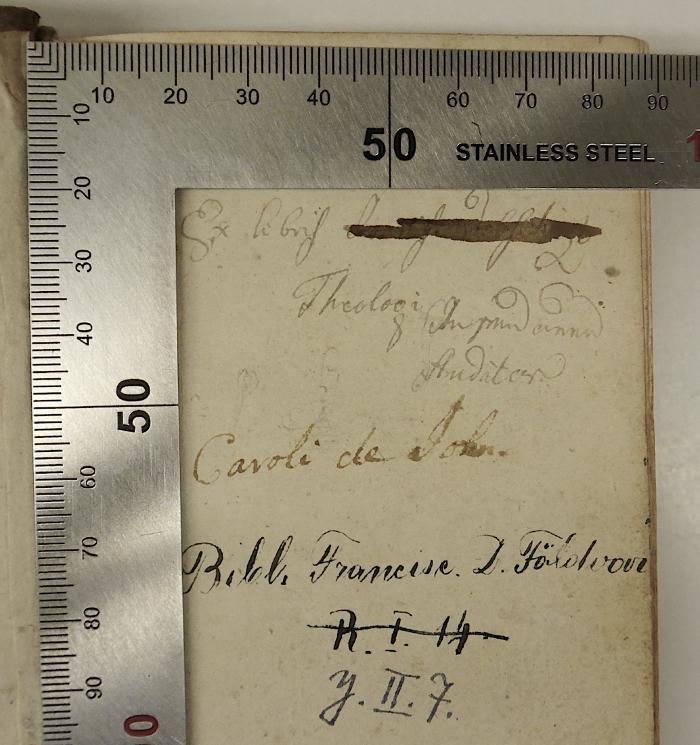 10 20 30 40 50 60 70 80 90
STAINLESS STEEL
10
20
30
40
50
60
70
80
90
Ex libris
Theologi
Auditor
Caroli de John.
Bibl. Francisc. D. Földvári
R. I. 14
y. II. 7.